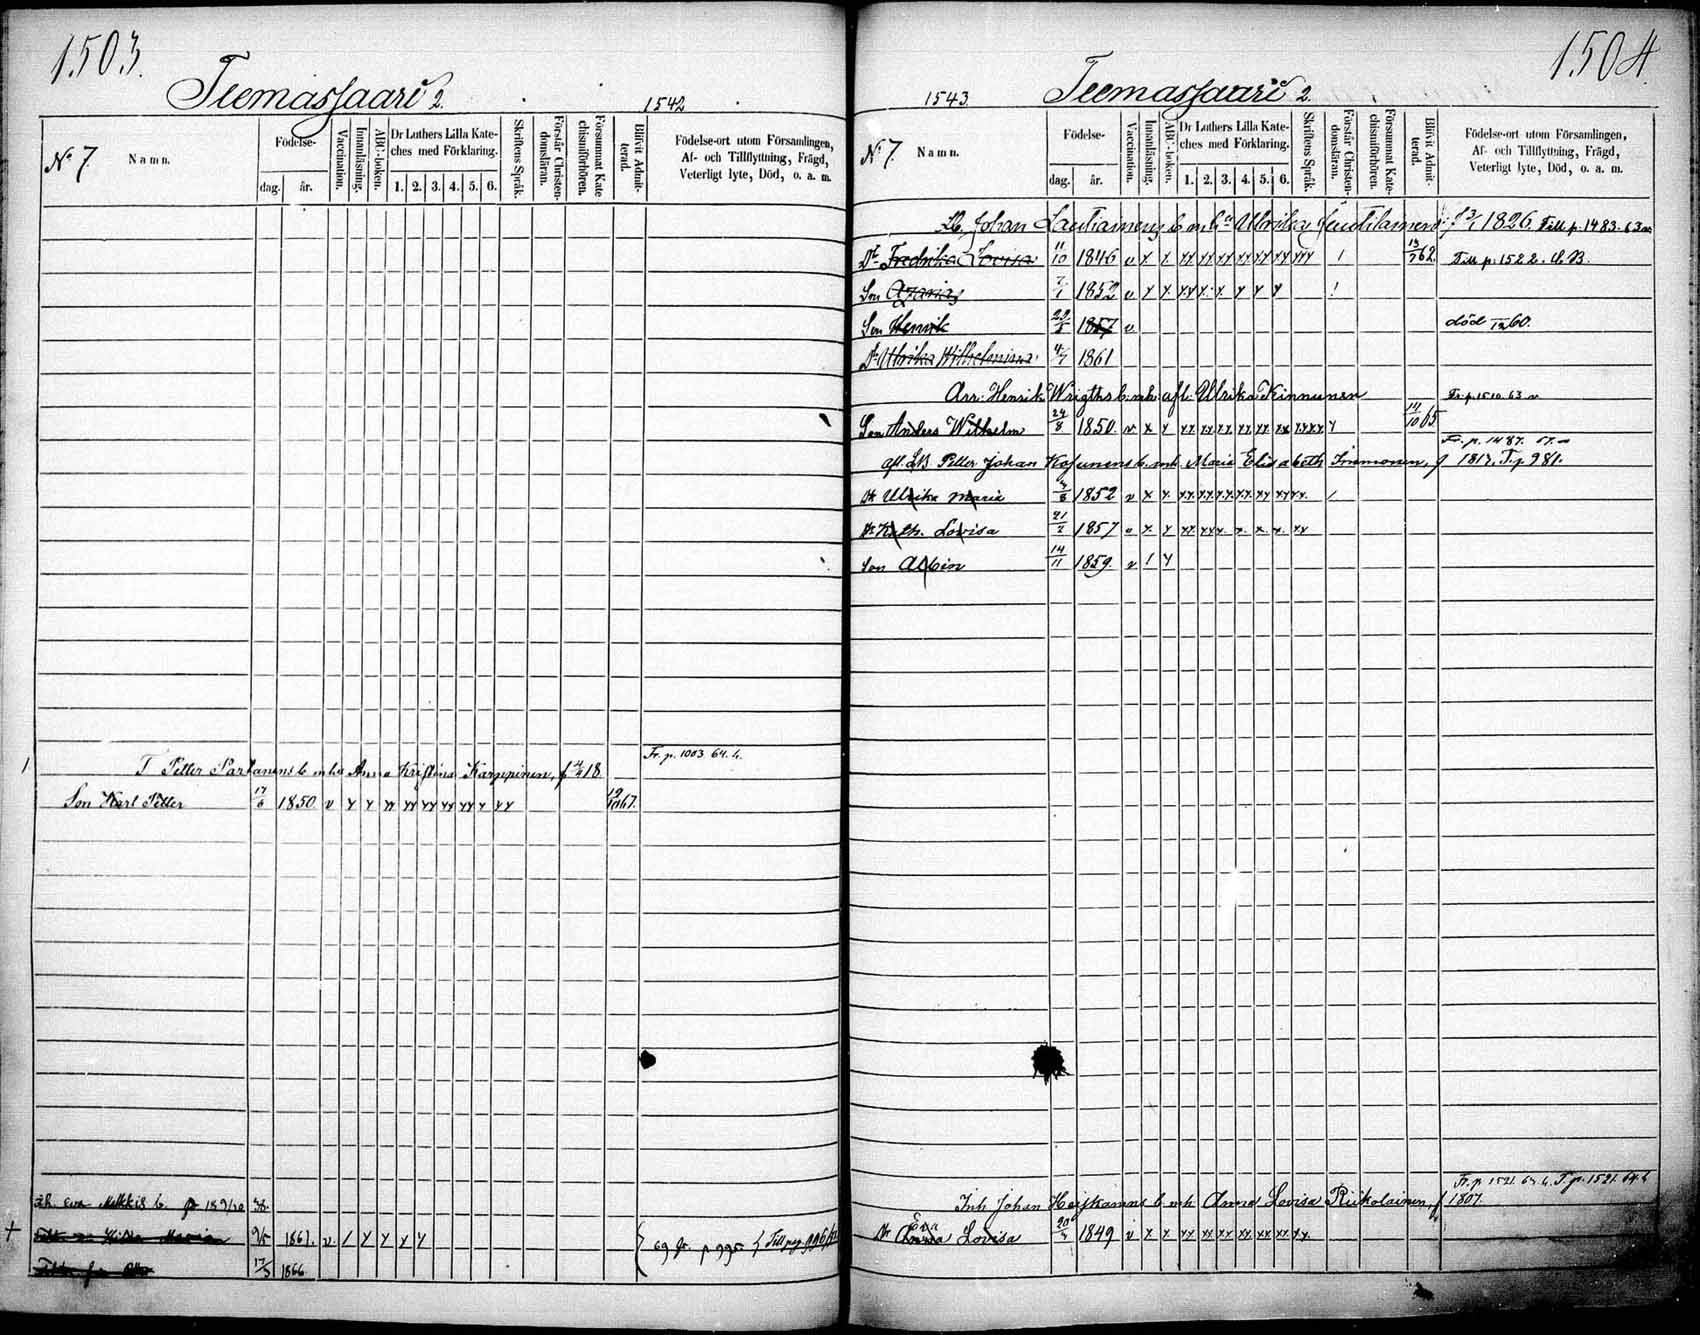 1503.
Teemassaari 2.
1542
No 7.
Namn.
Födelse-
dag.
år.
Vaccination.
Innanläsning.
ABC-boken.
Dr Luthers Lilla Kate-
ches med Förklaring.
1. 2. 3. 4. 5. 6.
Skriftens Språk.
Förstår Christen-
domsläran.
Försummat Kate
chismiförhören.
Blifvit Admit-
terad.
Födelse-ort utom Församlingen,
Af- och Tillflyttning, Frägd,
Veterligt lyte, Död, o. a. m.
Fr. p. 1003. 64. h.
T Petter Partanens b. mka Anna Kristina Karppinen, f 4/4 18
Son Karl Petter 17/6 1850 v x x xx xx xx xx xx x xx 19/10 67.
Eva b. p 189/40 38.
Hilda Maria 9/5 1861. v / x x x x
69 fr. p 995 Till pag 996/
17/3 1866
1504
Teemassaari 2.
1543.
No 7.
Namn.
Födelse-
dag.
år.
Vaccination.
Innanläsning.
ABC-boken.
Dr Luthers Lilla Kate-
ches med Förklaring.
1. 2. 3. 4. 5. 6.
Skriftens Språk.
Förstår Christen-
domsläran.
Försummat Kate-
chismiförhören.
Blifvit Admit-
terad.
Födelse-ort utom Församlingen,
Af- och Tillflyttning, Frägd,
Veterligt lyte, Död, o. a. m.
Lb. Johan b. m. h. Ulrika f 3/1 1826. Till p. 1483. 63
Dr Fredrika Lovisa 11/10 1846 v x x xx xx xx xx xx xx xxx / 13/7 62 Till p. 1522.
Son Azarias 7/1 1852 v x x xx x x x x x !
Son Henrik 29/8 1857 v död /12 60.
Dr Ulrika Wilhelmina 4/7 1861
Arr. Henrik Wrigths b. mh: afl: Ulrika Kinnunen Fr. p. 1510. 63
Son Anders Wilhelm 24/8 1850. v x x xx xx xx xx xx xx xxxx x 14/10 65
Fr. p. 1487. 67.
afl. LB Petter Johan Kosunens b. mh. Maria Elisabeth Immonen, f 1817. T. p. 981.
Dr Ulrika Maria 3/8 1852 v x x xx xx xx xx xx xx xx /
Dr Kath. Lovisa 21/2 1857 v x x xx xx x x x x xx
Son Albin 14/11 1859. v / x
Fr. p. 1521. 63. h. T. p. 1521. 64. h
Inh Johan Heiskanens b. mh Anna Lovisa Riikolainen, f 1807.
Eva
Dr Anna Lovisa 20/3 1849 v x x xx xx xx xx xx xx xx